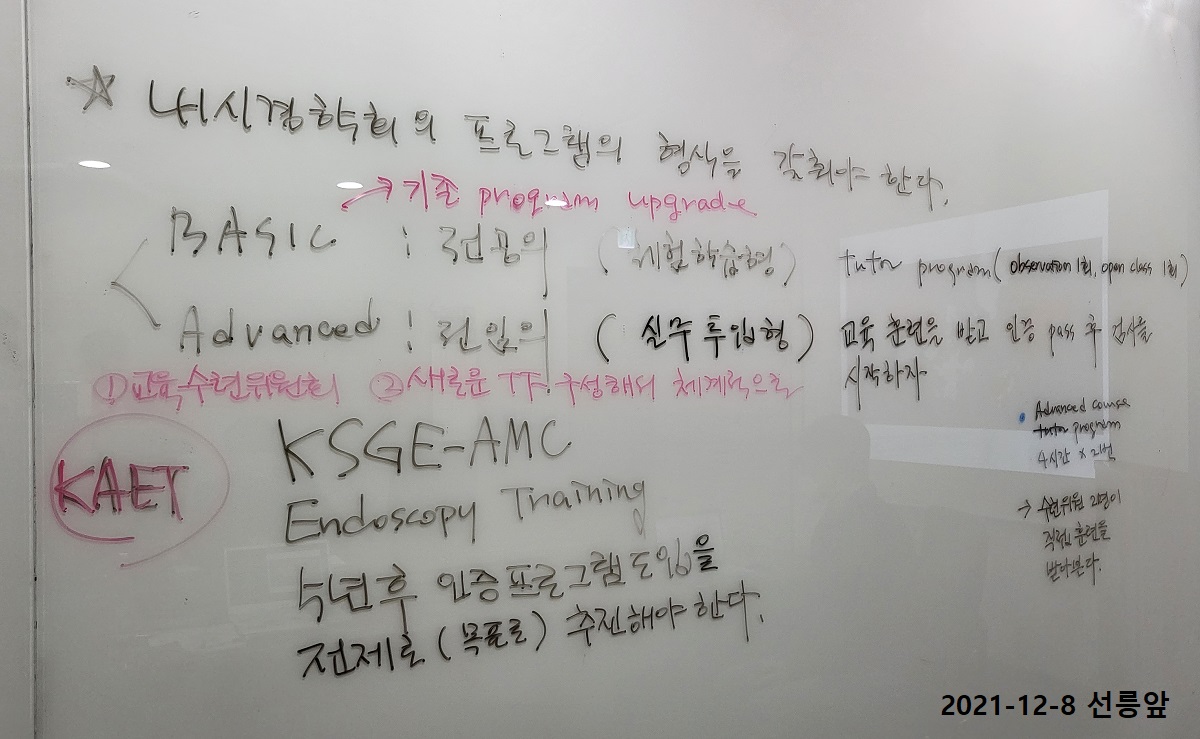 ☆ 내시경학회의 프로그램의 형식을 갖춰야 한다.
→ 기존 program upgrade
BASIC : 전공의 (체험학습형) tutor program (observation 1회, open class 1회)
Advanced : 전임의 (실주투입형) 교육 훈련을 받고 인증 pass 후 검사를
시작하자
① 교육수련위원회 ② 새로운 TF 구성해서 체계적으로
KAET
KSGE-AMC
Endoscopy Training
수년후 인증프로그램 도입을
전제로 (목표로) 추진해야 한다.
• Advanced course
tutor program
4시간 × 2번
→ 수련위원 2명이
직접 훈련을
받아본다.
2021-12-8 선릉앞